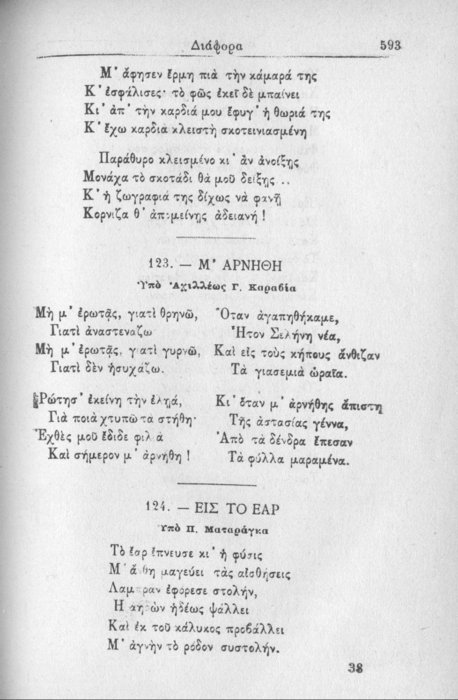 Διάφορα 593
Μ᾽ ἄφησεν ἔρμη πιὰ τὴν κάμαρά της
Κ᾽ ἐσφάλισες· τὸ φῶς ἐκεῖ δὲ μπαίνει
Κι᾽ ἀπ᾽ τὴν καρδιά μου ἔφυγ᾽ ἡ θωριά της
Κ᾽ ἔχω καρδιὰ κλειστὴ σκοτεινιασμένη
Παράθυρο κλεισμένο κι᾽ ἂν ἀνοίξῃς
Μονάχα τὸ σκοτάδι θὰ μοῦ δείξῃς ..
Κ᾽ ἡ ζωγραφιά της δίχως νὰ φανῇ
Κορνίζα θ᾽ ἀπομείνῃς ἀδειανή !
123. — Μ᾽ ΑΡΝΗΘΗ
Ὑπὸ Ἀχιλλέως Γ. Καραβία
Μὴ μ᾽ ἐρωτᾷς, γιατὶ θρηνῶ,
Γιατὶ ἀναστενάζω
Μὴ μ᾽ ἐρωτᾷς, γιατὶ γυρνῶ,
Γιατὶ δὲν ἡσυχάζω.
Ρώτησ᾽ ἐκείνη τὴν ἐληά,
Γιὰ ποιὰ χτυπῶ τὰ στήθη·
Ἐχθὲς μοῦ ἔδιδε φιλιὰ
Καὶ σήμερον μ᾽ ἀρνήθη !
Ὅταν ἀγαπηθήκαμε,
Ἦτον Σελήνη νέα,
Καὶ εἰς τοὺς κήπους ἄνθιζαν
Τὰ γιασεμιὰ ὡραῖα.
Κι᾽ ὅταν μ᾽ ἀρνήθης ἄπιστη
Τῆς ἀστασίας γέννα,
Ἀπὸ τὰ δένδρα ἔπεσαν
Τὰ φύλλα μαραμένα.
124. — ΕΙΣ ΤΟ ΕΑΡ
Ὑπὸ Π. Ματαράγκα
Τὸ ἔαρ ἔπνευσε κι᾽ ἡ φύσις
Μ᾽ ἄνθη μαγεύει τὰς αἰσθήσεις
Λαμπρὰν ἐφόρεσε στολήν,
Ἡ ἀηδὼν ἡδέως ψάλλει
Καὶ ἐκ τοῦ κάλυκος προβάλλει
Μ᾽ ἁγνὴν τὸ ρόδον συστολήν.
38